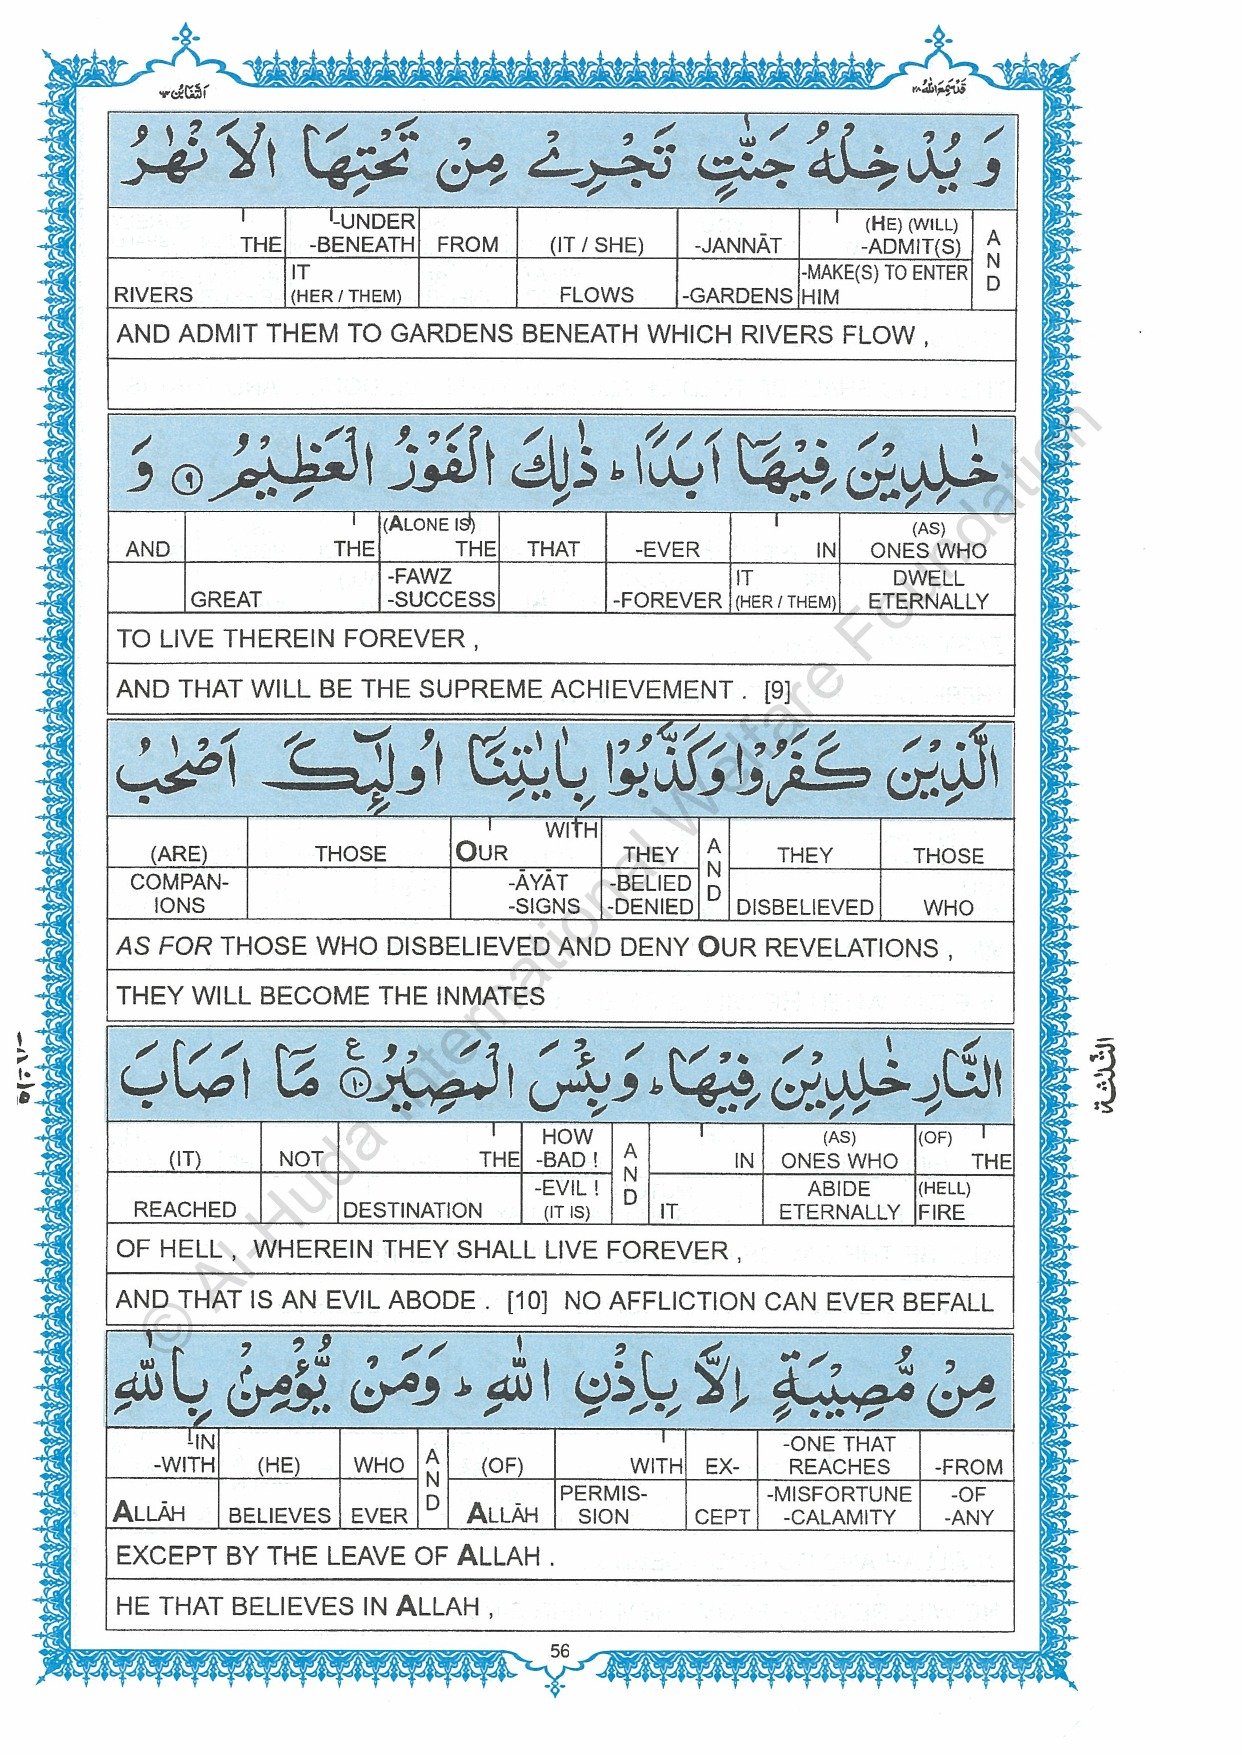 قد سمع الله ٢٨
التغابن ٦٤
وَ يُدْخِلْهُ جَنّٰتٍ تَجْرِيْ مِنْ تَحْتِهَا الْاَنْهٰرُ
THE -UNDER -BENEATH FROM (IT / SHE) -JANNĀT (HE) (WILL) -ADMIT(S) AND
RIVERS IT (HER / THEM) FLOWS -GARDENS -MAKE(S) TO ENTER HIM
AND ADMIT THEM TO GARDENS BENEATH WHICH RIVERS FLOW ,
خٰلِدِيْنَ فِيْهَاۤ اَبَدًا ؕ ذٰلِكَ الْفَوْزُ الْعَظِيْمُ ۹ وَ
AND THE (ALONE IS) THE THAT -EVER IN (AS) ONES WHO
GREAT -FAWZ -SUCCESS -FOREVER IT (HER / THEM) DWELL ETERNALLY
TO LIVE THEREIN FOREVER ,
AND THAT WILL BE THE SUPREME ACHIEVEMENT . [9]
الَّذِيْنَ كَفَرُوْا وَ كَذَّبُوْا بِاٰيٰتِنَاۤ اُولٰٓئِكَ اَصْحٰبُ
(ARE) THOSE OUR WITH THEY AND THEY THOSE
COMPAN- IONS -ĀYĀT -SIGNS -BELIED -DENIED DISBELIEVED WHO
AS FOR THOSE WHO DISBELIEVED AND DENY OUR REVELATIONS ,
THEY WILL BECOME THE INMATES
النَّارِ خٰلِدِيْنَ فِيْهَا ؕ وَ بِئْسَ الْمَصِيْرُ ۱۰ ع مَاۤ اَصَابَ
(IT) NOT THE HOW -BAD ! AND IN (AS) ONES WHO (OF) THE
REACHED DESTINATION -EVIL ! (IT IS) IT ABIDE ETERNALLY (HELL) FIRE
OF HELL , WHEREIN THEY SHALL LIVE FOREVER ,
AND THAT IS AN EVIL ABODE . [10] NO AFFLICTION CAN EVER BEFALL
مِنْ مُّصِيْبَةٍ اِلَّا بِاِذْنِ اللّٰهِ ؕ وَ مَنْ يُّؤْمِنْۢ بِاللّٰهِ
-IN -WITH (HE) WHO AND (OF) WITH EX- -ONE THAT REACHES -FROM
ALLĀH BELIEVES EVER ALLĀH PERMIS- SION CEPT -MISFORTUNE -CALAMITY -OF -ANY
EXCEPT BY THE LEAVE OF ALLAH .
HE THAT BELIEVES IN ALLAH ,
56
الثلثة
© Al-Huda International Welfare Foundation